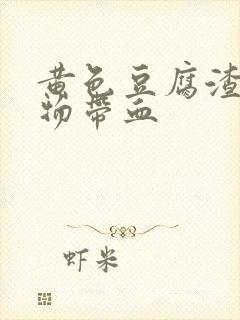 黄色豆腐渣
物带血
虾米